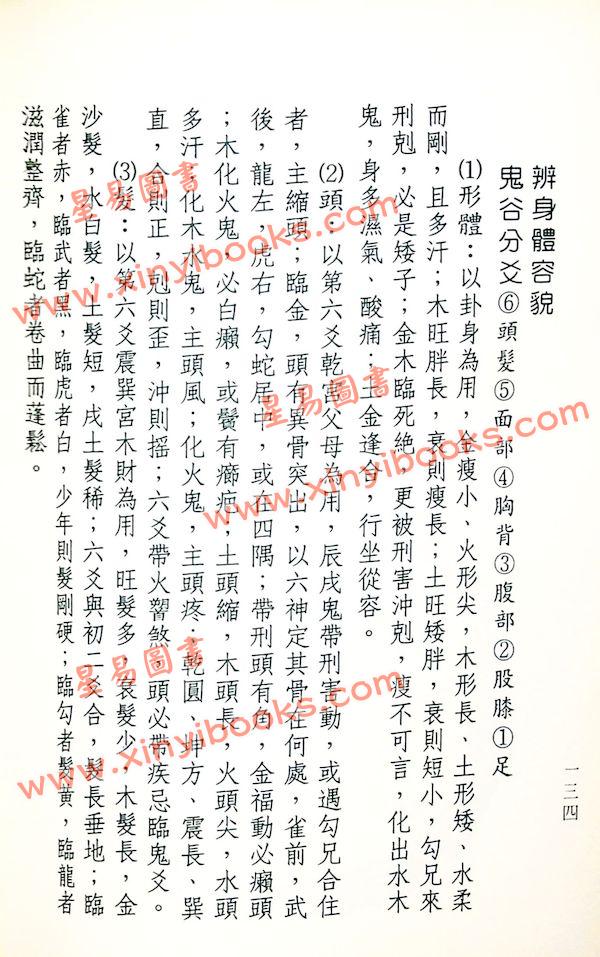 辨身體容貌
鬼谷分爻⑥頭髮⑤面部④胸背③腹部②股膝①足
⑴形體：以卦身為用，金瘦小、火形尖，木形長、土形矮、水柔
而剛，且多汗；木旺胖長，衰則瘦長；土旺矮胖，衰則短小，勾兄來
刑剋，必是矮子；金木臨死絕，更被刑害沖剋，瘦不可言，化出水木
鬼，身多濕氣、酸痛；土金逢合，行坐從容。
⑵頭：以第六爻乾宮父母為用，辰戌鬼帶刑害動，或遇勾兄合住
者，主縮頭；臨金，頭有異骨突出，以六神定其骨在何處，雀前，武
後，龍左，虎右，勾蛇居中，或在四隅；帶刑頭有角，金福動必癩頭
；木化火鬼，必白癩，或鬢有癤疤；土頭縮，木頭長，火頭尖，水頭
多汗，化木水鬼，主頭風；化火鬼，主頭疼；乾圓、坤方、震長、巽
直，合則正，剋則歪，沖則搖；六爻帶火煞，頭必帶疾忌臨鬼爻。
⑶髮：以第六爻震巽宮木財為用，旺髮多，衰髮少，木髮長，金
沙髮，水白髮，土髮短，戌土髮稀；六爻與初二爻合，髮長垂地；臨
雀者赤，臨武者黑，臨虎者白，少年則髮剛硬；臨勾者髮黃，臨龍者
滋潤整齊，臨蛇者卷曲而蓬鬆。
一三四
星易圖書
www.xinyibooks.com
星易圖書
www.xinyibooks.com
星易圖書
www.xinyibooks.com